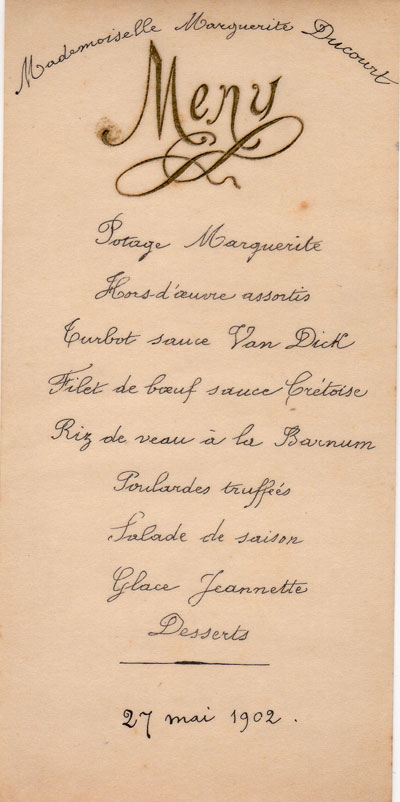 Mademoiselle Marguerite Ducourt
Menu
Potage Marguerite
Hors-d'œuvre assortis
Turbot sauce Van Dick
Filet de bœuf sauce Crétoise
Riz de veau à la Barnum
Poulardes truffées
Salade de saison
Glace Jeannette
Desserts
27 mai 1902.